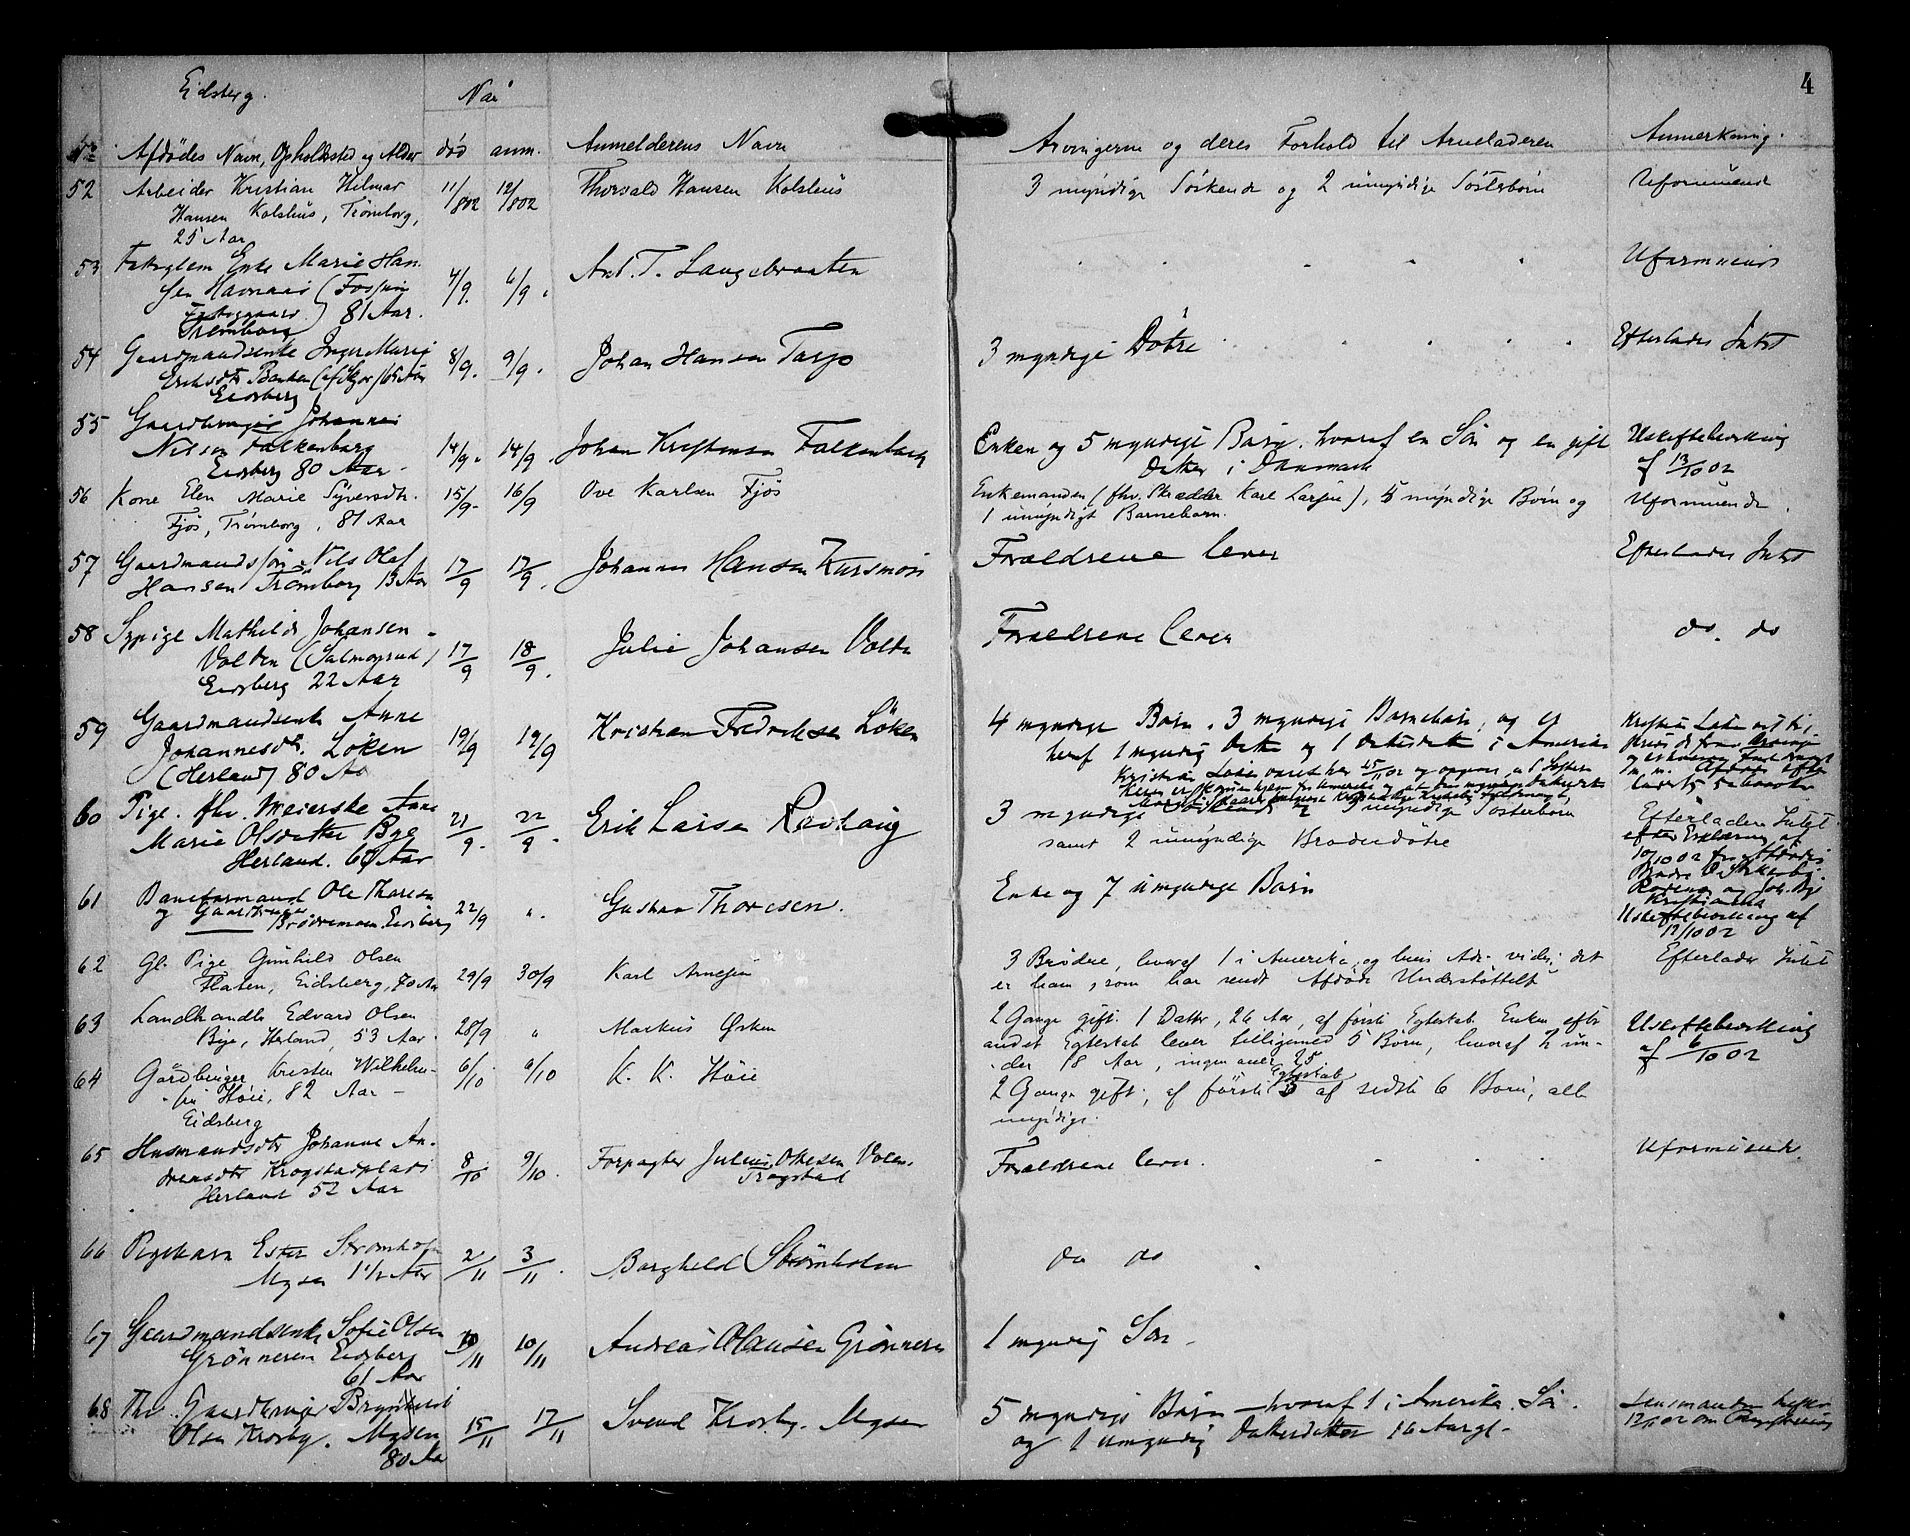 4
Eidsberg.
Naar
No Afdødes Navn, Opholdssted og Alder død anm. Anmelderens Navn Arvingerne og deres Forhold til Arveladeren Anmerkning.
52 Arbeider Kristian Hilmar 11/802 12/802 Thorvald Hansen Kolshus 3 myndige Søskende og 2 umyndige Søsterbørn Uformuende
Hansen Kolshus, Trømborg,
25 Aar
53 Fattiglem Enke Marie Han- 4/9. 6/9. Ant. T. Langebraaten Uformuende
sen Havnaas
Trømborg) 81 Aar.
54 Gaardmandsenke Inger Marie 8/9. 9/9. Johan Hansen 3 myndige Døtre Efterlader Intet
Eriksdtr 65 Aar
Eidsberg
55 Gaardbruger Johannes
Nilsen Falkenberg 14/9. 14/9 Johan Kristensen Falkenberg Enken og 5 myndige Børn, hvoraf en Søn og en gift Uskiftebevilling
Eidsberg 80 Aar Datter i Danmark af 13/10 02
56 Kone Elen Marie Syversdtr. 15/9. 16/9 Ove Karlsen Fjøs Enkemanden (fhv. Skrædder Karl Larsen), 5 myndige Børn og Uformuende.
Fjøs, Trømborg, 81 Aar 1 umyndigt Barnebarn.
57 Gaardmandssøn Nils Olaf 17/9 17/9. Johannes Hansen Forældrene lever Efterlader Intet
Hansen Trømborg 13 Aar
58 Sypige Mathilde Johansen 17/9 18/9. Julie Johansen Volden Forældrene lever do. do
Volden
Eidsberg 22 Aar
59 Gaardmandsenke Anne 19/9 19/9 Kristian Fredriksen Løken 4 myndige Børn, 3 myndige Barnebørn, og er
Johannesdtr. Løken heraf 1 myndig Datter og 1 Datterdatter i Amerika
(Herland) 80 Aar
60 Pige, fhv. Meierske Anne 21/9. 22/9. Erik Larsen Ravhaug 3 myndige Søskende 2 myndige Søsterbørn Efterlader Intet
Marie Olsdatter Bye samt 2 umyndige Broderdøtre efter Erklæring af
Herland. 67 Aar 10/10 02 fra Afdødes
61 Baneformand Ole Thoresen 22/9 ". Gustav Thoresen. Enke og 7 umyndige Børn
og Gaardbruger
Brødremoen, Eidsberg Uskiftebevilling af
12/10 02
62 Gl. Pige Gunhild Olsen 29/9 30/9 Karl Arnesen 3 Brødre, hvoraf 1 i Amerika, og hvis Adr. vides; det Efterlader Intet
Flaten, Eidsberg, 70 Aar er ham, som har sendt Afdøde Understøttelse
63 Landhandler Edvard Olsen 28/9 " Markus Ørken 2 Gange gift. 1 Datter, 26 Aar, af første Egteskab. Enken efter Uskiftebevilling
Bye, Herland, 53 Aar. andet Egteskab lever tilligemed 5 Børn, hvoraf 2 un- af 6/10 02
der 18 Aar, ingen over 25
64 Gårdbruger Kristen Wilhelm- 6/10 6/10 K. K. Høie 2 Gange gift; af første Egteskab 3 af sidste 6 Børn, alle
sen Høie, 82 Aar myndige.
Eidsberg
65 Husmandsdtr Johanne An- 8/10 9/10. Forpagter Julius Ottesen Forældrene lever. Uformuende.
dreasdtr Krogstadplads Trøgstad
Herland 52 Aar
66 Pigebarn Ester Strømholm 2/11 3/11. Borghild Strømholm do do
Mysen 1 1/2 Aar
67 Gaardmandsenke Sofie Olsen 10/11 10/11 Andreas Olausen Grønneren 1 myndig Søn
Grønneren Eidsberg
61 Aar
68 Fhv. Gaardbruger Brynhild 15/11 17/11 Svend Krosby. Mysen 5 myndige Børn hvoraf 1 i Amerika Søn.
Olsen Krosby. Mysen og 1 umyndig Datterdatter 16 Aar gl.
80 Aar